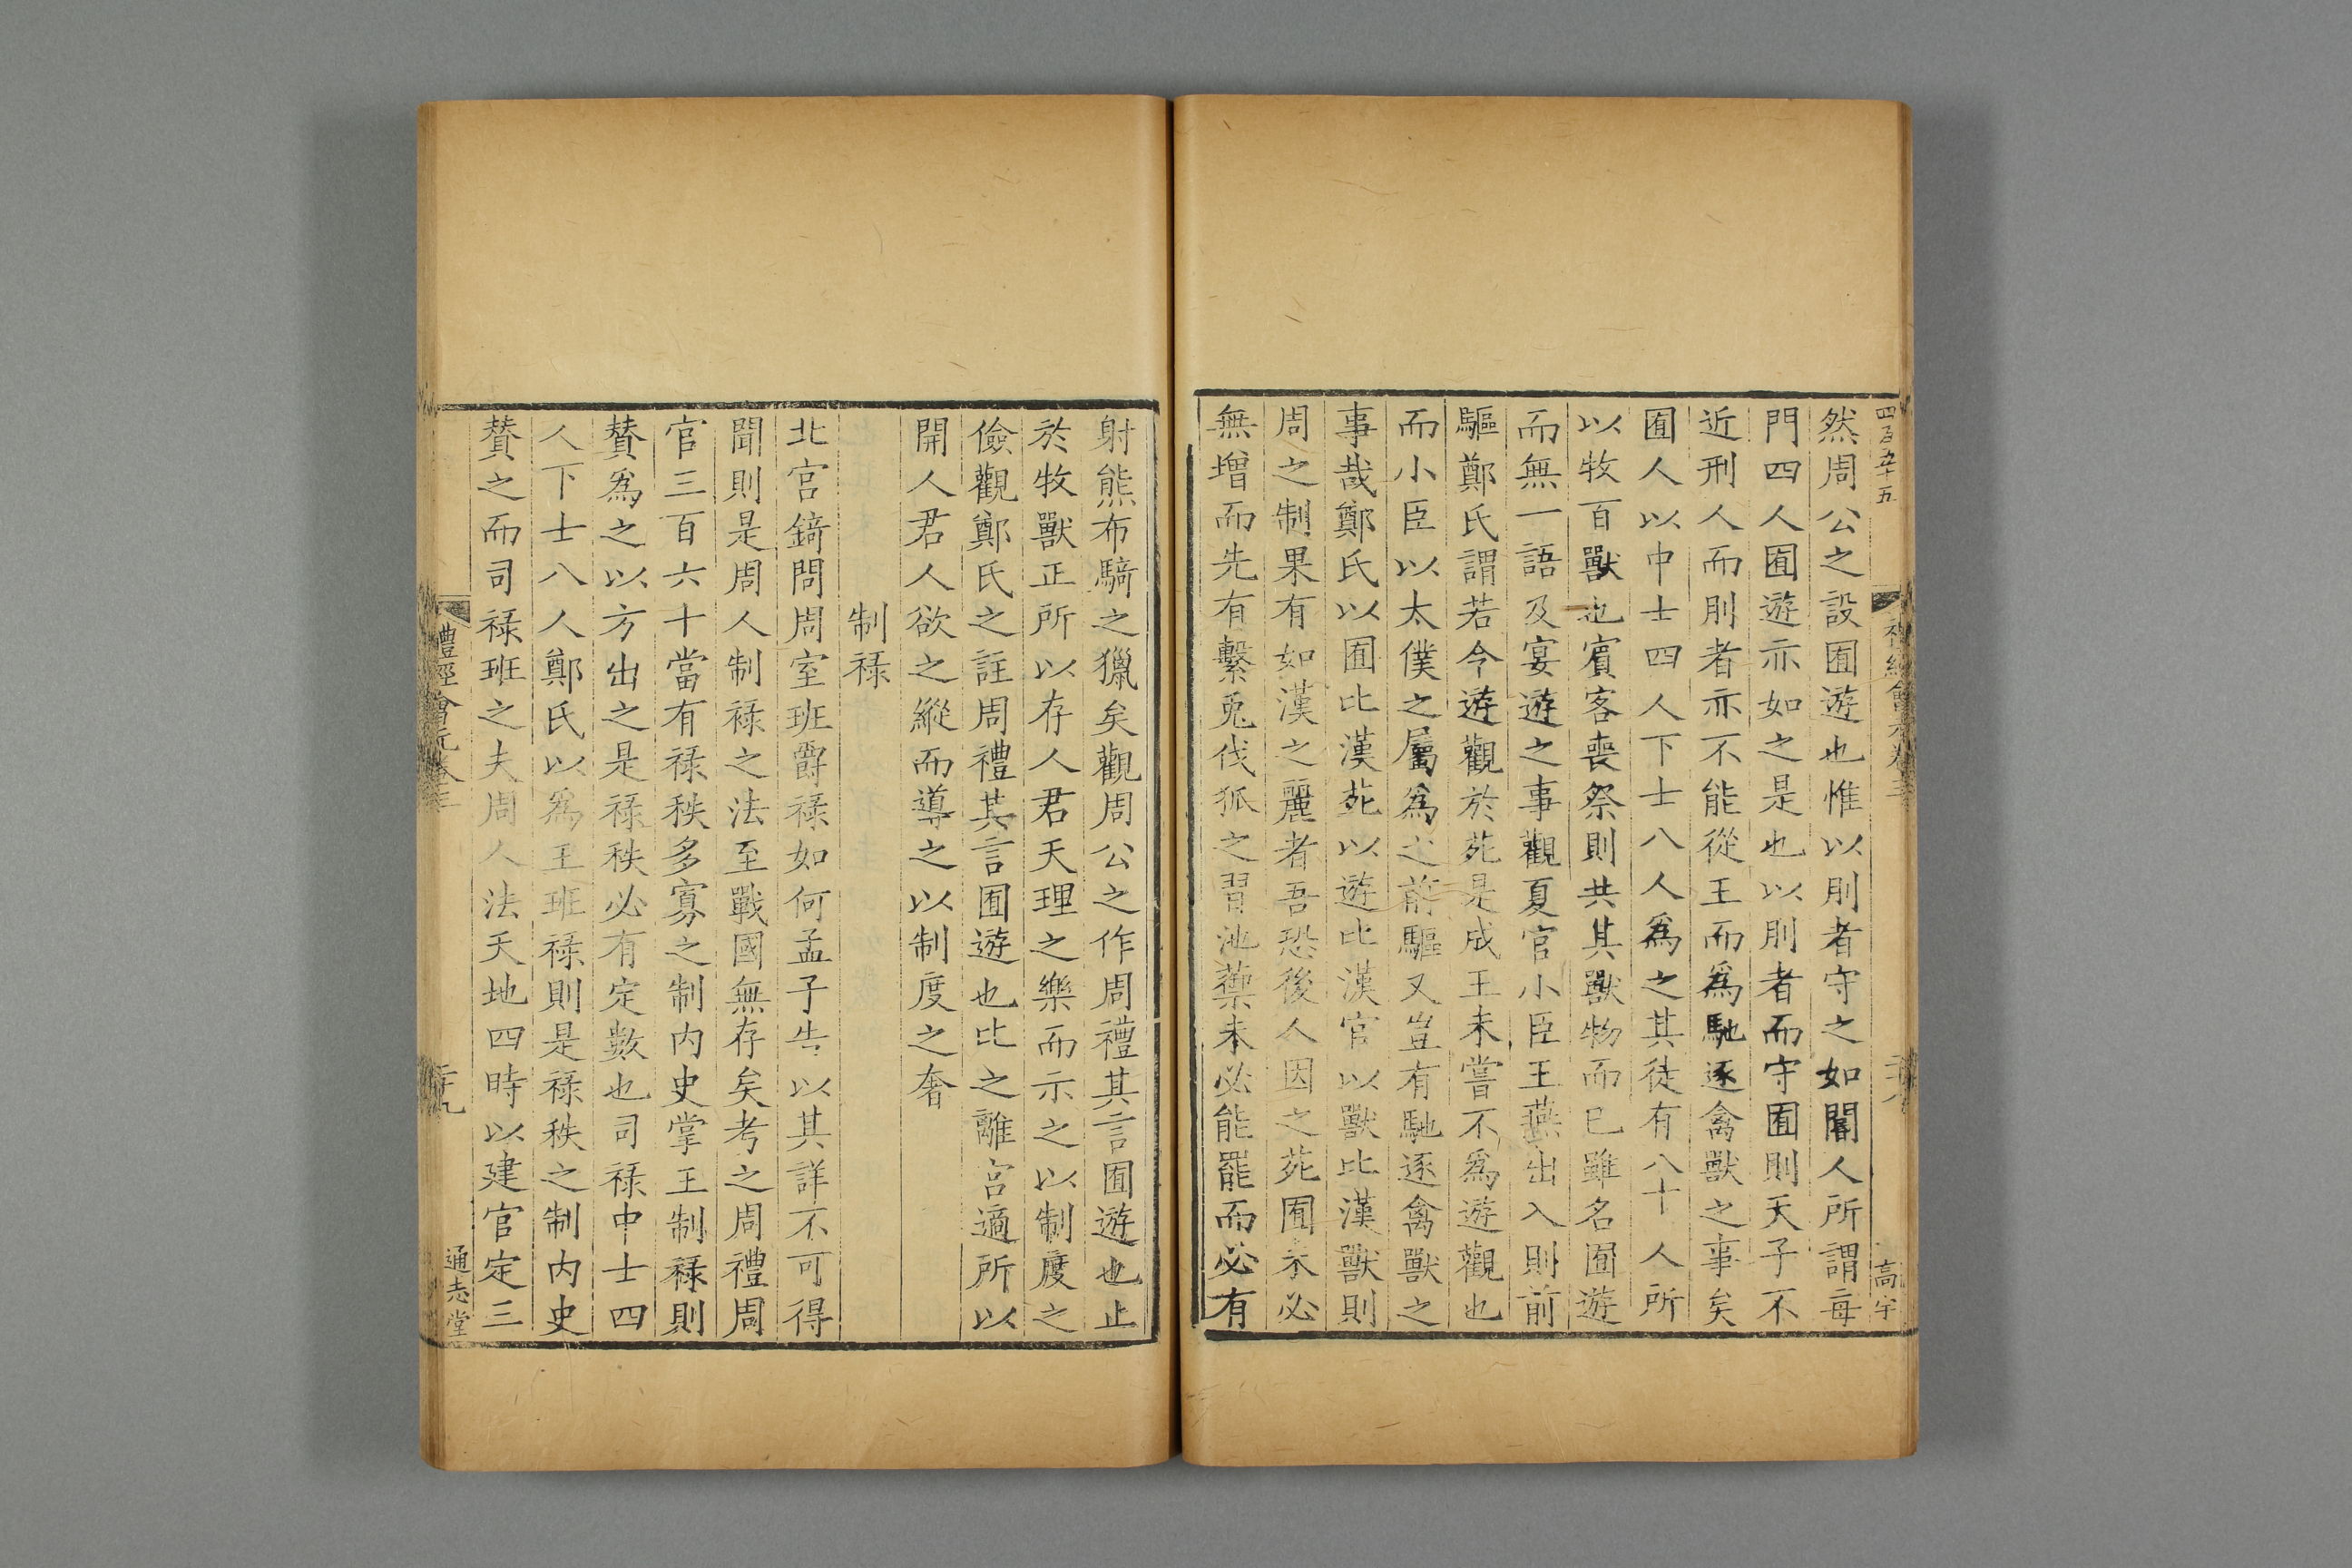 四百五十五
高宇
然周公之設囿遊也惟以刖者守之如閽人所謂每
門四人囿遊亦如之是也以刖者而守囿則天子不
近刑人而刖者亦不能從王而爲馳逐禽獸之事矣
囿人以中士四人下士八人爲之其徒有八十人所
以牧百獸也賓客喪祭則共其獸物而已雖名囿遊
而無一語及宴遊之事觀夏官小臣王燕出入則前
驅鄭氏謂若今遊觀於苑是成王未嘗不爲遊觀也
而小臣以太僕之屬爲之前驅又豈有馳逐禽獸之
事哉鄭氏以囿比漢苑以遊比漢官以獸比漢獸則
周之制果有如漢之麗者吾恐後人因之苑囿未必
無增而先有繫兎伐狐之習池蘌未必能罷而必有
射熊布騎之獵矣觀周公之作周禮其言囿遊也止
於牧獸正所以存人君天理之樂而示之以制度之
儉觀鄭氏之註周禮其言囿遊也比之離宮適所以
開人君人欲之縱而導之以制度之奢
制祿
北宮錡問周室班爵祿如何孟子告以其詳不可得
聞則是周人制祿之法至戰國無存矣考之周禮周
官三百六十當有祿秩多寡之制内史掌王制祿則
贊爲之以方出之是祿秩必有定數也司祿中士四
人下士八人鄭氏以爲王班祿則是祿秩之制内史
贊之而司祿班之夫周人法天地四時以建官定三
禮經會元卷三
二十九
通志堂